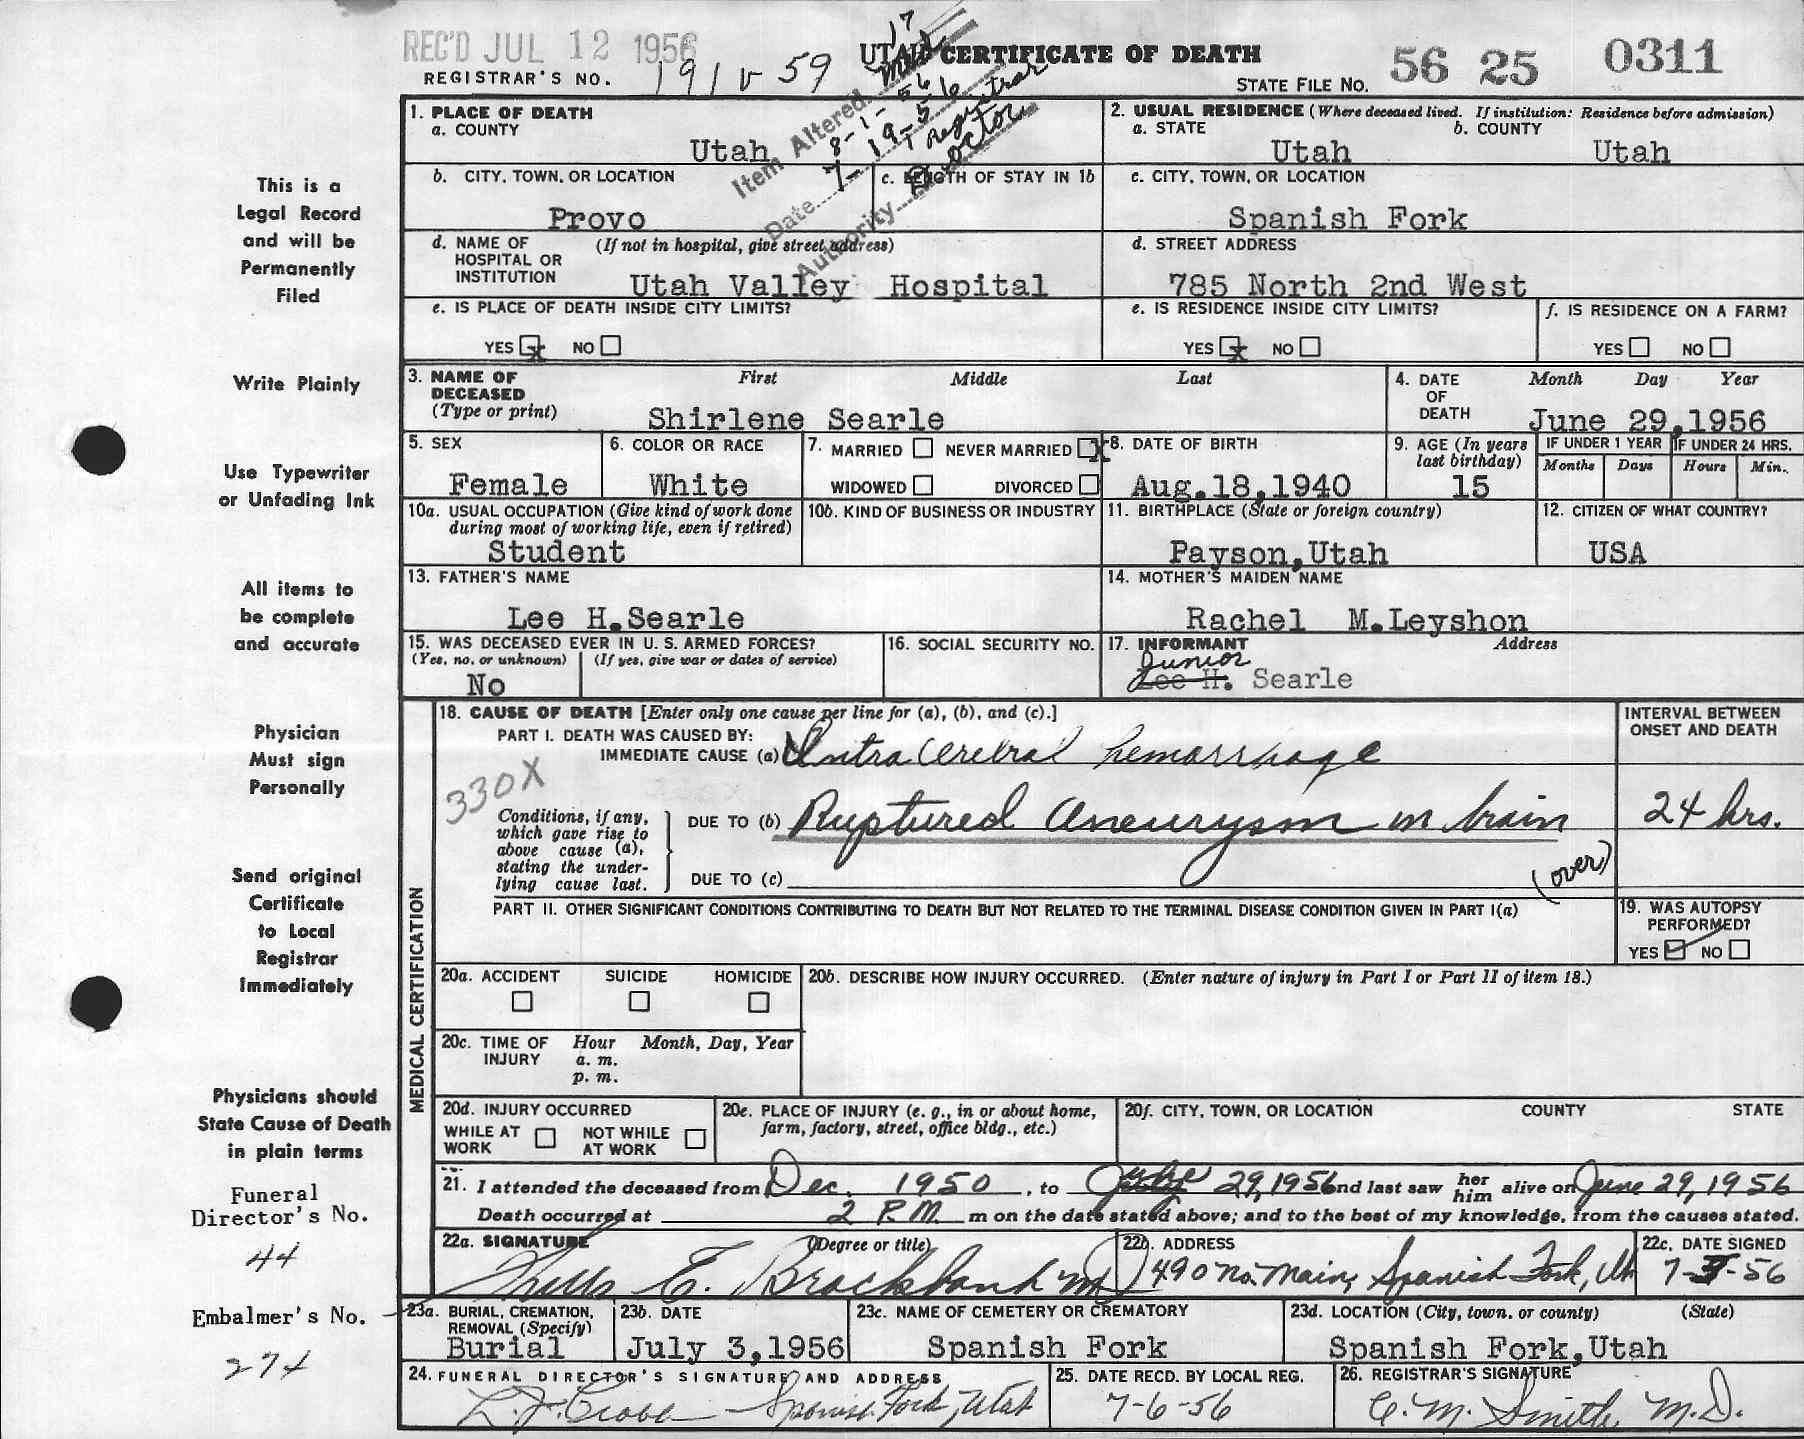 REC'D JUL 12 1956
17
UTAH CERTIFICATE OF DEATH
56 25 0311
REGISTRAR'S NO. 191 v 59
STATE FILE NO.
Item Altered
8-1-56
Date 7-19-56
Registrar
Authority Doctor
1. PLACE OF DEATH
a. COUNTY
Utah
b. CITY, TOWN, OR LOCATION
Provo
c. LENGTH OF STAY IN 1b
d. NAME OF HOSPITAL OR INSTITUTION
(If not in hospital, give street address)
Utah Valley Hospital
e. IS PLACE OF DEATH INSIDE CITY LIMITS?
YES x NO
2. USUAL RESIDENCE (Where deceased lived. If institution: Residence before admission)
a. STATE
Utah
b. COUNTY
Utah
c. CITY, TOWN, OR LOCATION
Spanish Fork
d. STREET ADDRESS
785 North 2nd West
e. IS RESIDENCE INSIDE CITY LIMITS?
YES x NO
f. IS RESIDENCE ON A FARM?
YES NO
3. NAME OF DECEASED
(Type or print)
First Middle Last
Shirlene Searle
4. DATE OF DEATH
Month Day Year
June 29,1956
5. SEX
Female
6. COLOR OR RACE
White
7. MARRIED NEVER MARRIED x
WIDOWED DIVORCED
8. DATE OF BIRTH
Aug.18,1940
9. AGE (In years last birthday)
15
IF UNDER 1 YEAR
Months Days
IF UNDER 24 HRS.
Hours Min.
10a. USUAL OCCUPATION (Give kind of work done during most of working life, even if retired)
Student
10b. KIND OF BUSINESS OR INDUSTRY
11. BIRTHPLACE (State or foreign country)
Payson,Utah
12. CITIZEN OF WHAT COUNTRY?
USA
13. FATHER'S NAME
Lee H.Searle
14. MOTHER'S MAIDEN NAME
Rachel M.Leyshon
15. WAS DECEASED EVER IN U. S. ARMED FORCES?
(Yes, no, or unknown) (If yes, give war or dates of service)
No
16. SOCIAL SECURITY NO.
17. INFORMANT Address
Junior
Lee H. Searle
MEDICAL CERTIFICATION
18. CAUSE OF DEATH [Enter only one cause per line for (a), (b), and (c).]
PART I. DEATH WAS CAUSED BY:
IMMEDIATE CAUSE (a) Intra Cerebral hemorrhage
330X
Conditions, if any, which gave rise to above cause (a), stating the underlying cause last.
DUE TO (b) Ruptured aneurysm in brain
DUE TO (c)
(over)
INTERVAL BETWEEN ONSET AND DEATH
24 hrs.
PART II. OTHER SIGNIFICANT CONDITIONS CONTRIBUTING TO DEATH BUT NOT RELATED TO THE TERMINAL DISEASE CONDITION GIVEN IN PART I(a)
19. WAS AUTOPSY PERFORMED?
YES NO
20a. ACCIDENT SUICIDE HOMICIDE
20b. DESCRIBE HOW INJURY OCCURRED. (Enter nature of injury in Part I or Part II of item 18.)
20c. TIME OF INJURY
Hour Month, Day, Year
a. m.
p. m.
20d. INJURY OCCURRED
WHILE AT WORK NOT WHILE AT WORK
20e. PLACE OF INJURY (e. g., in or about home, farm, factory, street, office bldg., etc.)
20f. CITY, TOWN, OR LOCATION COUNTY STATE
21. I attended the deceased from Dec. 1950, to 29,1956 and last saw her him alive on June 29, 1956
Death occurred at 2 P.M. m on the date stated above; and to the best of my knowledge, from the causes stated.
22a. SIGNATURE (Degree or title)
E. Brockbank MD
22b. ADDRESS
490 No. Main, Spanish Fork, Ut
22c. DATE SIGNED
7-3-56
23a. BURIAL, CREMATION, REMOVAL (Specify)
Burial
23b. DATE
July 3,1956
23c. NAME OF CEMETERY OR CREMATORY
Spanish Fork
23d. LOCATION (City, town, or county) (State)
Spanish Fork,Utah
24. FUNERAL DIRECTOR'S SIGNATURE AND ADDRESS
Spanish Fork, Utah
25. DATE RECD. BY LOCAL REG.
7-6-56
26. REGISTRAR'S SIGNATURE
C. M. Smith, M.D.
This is a
Legal Record
and will be
Permanently
Filed
Write Plainly
Use Typewriter
or Unfading Ink
All items to
be complete
and accurate
Physician
Must sign
Personally
Send original
Certificate
to Local
Registrar
Immediately
Physicians should
State Cause of Death
in plain terms
Funeral
Director's No.
44
Embalmer's No.
274